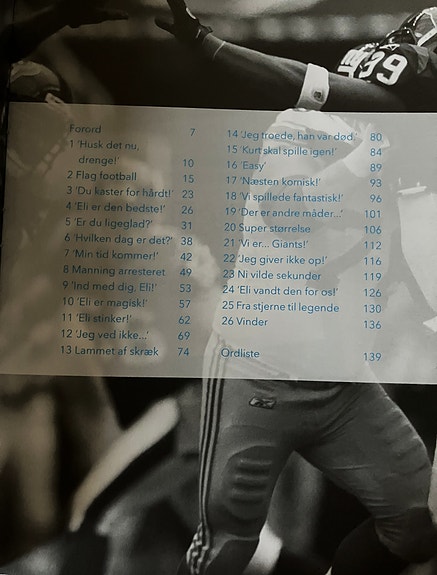 39
Forord 7
1 'Husk det nu,
drenge!' 10
2 Flag football 15
3 'Du kaster for hårdt!' 23
4 'Eli er den bedste!' 26
5 'Er du ligeglad?' 31
6 'Hvilken dag er det?' 38
7 'Min tid kommer!' 42
8 Manning arresteret 49
9 'Ind med dig, Eli!' 53
10 'Eli er magisk!' 57
11 'Eli stinker!' 62
12 'Jeg ved ikke...' 69
13 Lammet af skræk 74
14 'Jeg troede, han var død.' 80
15 'Kurt skal spille igen!' 84
16 'Easy' 89
17 'Næsten komisk!' 93
18 'Vi spillede fantastisk!' 96
19 'Der er andre måder...' 101
20 Super størrelse 106
21 'Vi er... Giants!' 112
22 'Jeg giver ikke op!' 116
23 Ni vilde sekunder 119
24 'Eli vandt den for os!' 126
25 Fra stjerne til legende 130
26 Vinder 136
Ordliste 139